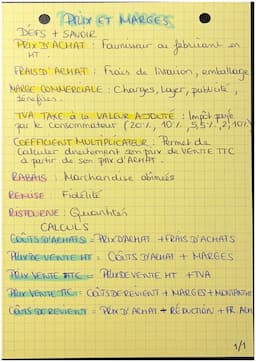 PRIX ET MARGES
DEFS + SAVOIR
PRIX D'ACHAT : Fournisseur ou fabricant en
HT.
FRAIS D'ACHAT : Frais de livraison, emballage
MARGE COMMERCIALE : Charges, Loyer, publicité,
bénéfices.
TVA TAXE à la VALEUR AJOUTÉE : Impôt payé
par le consommateur (20%, 10%, 5,5%, 2,10%)
COEFFICIENT MULTIPLICATEUR : Permet de
calculer directement son prix de VENTE TTC
à partir de son prix d'ACHAT.
RABAIS : Marchandise abîmées
REMISE : Fidélité
RISTOURNE : Quantités
CALCULS
COÛTS D'ACHATS = PRIX D'ACHAT + FRAIS D'ACHATS
PRIX DE VENTE HT = COÛTS D'ACHAT + MARGES
PRIX VENTE TTC = PRIX DE VENTE HT + TVA
PRIX VENTE TTC = COÛTS DE REVIENT + MARGES + MONTANT
COÛTS DE REVIENT = PRIX D'ACHAT - RÉDUCTION + FR. ACH
1/1